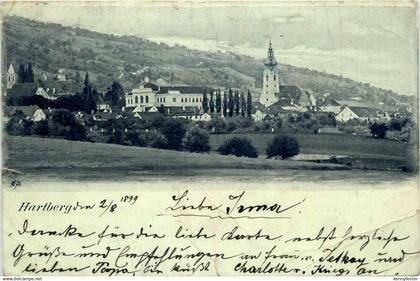 Hartberg den 2/8 1899 Liebe Irma
Danke für die liebe Karte nebst herzliche
Grüße und Empfehlungen an Frau v. und
lieben Papa, die küßt Charlotte v. Kriegs